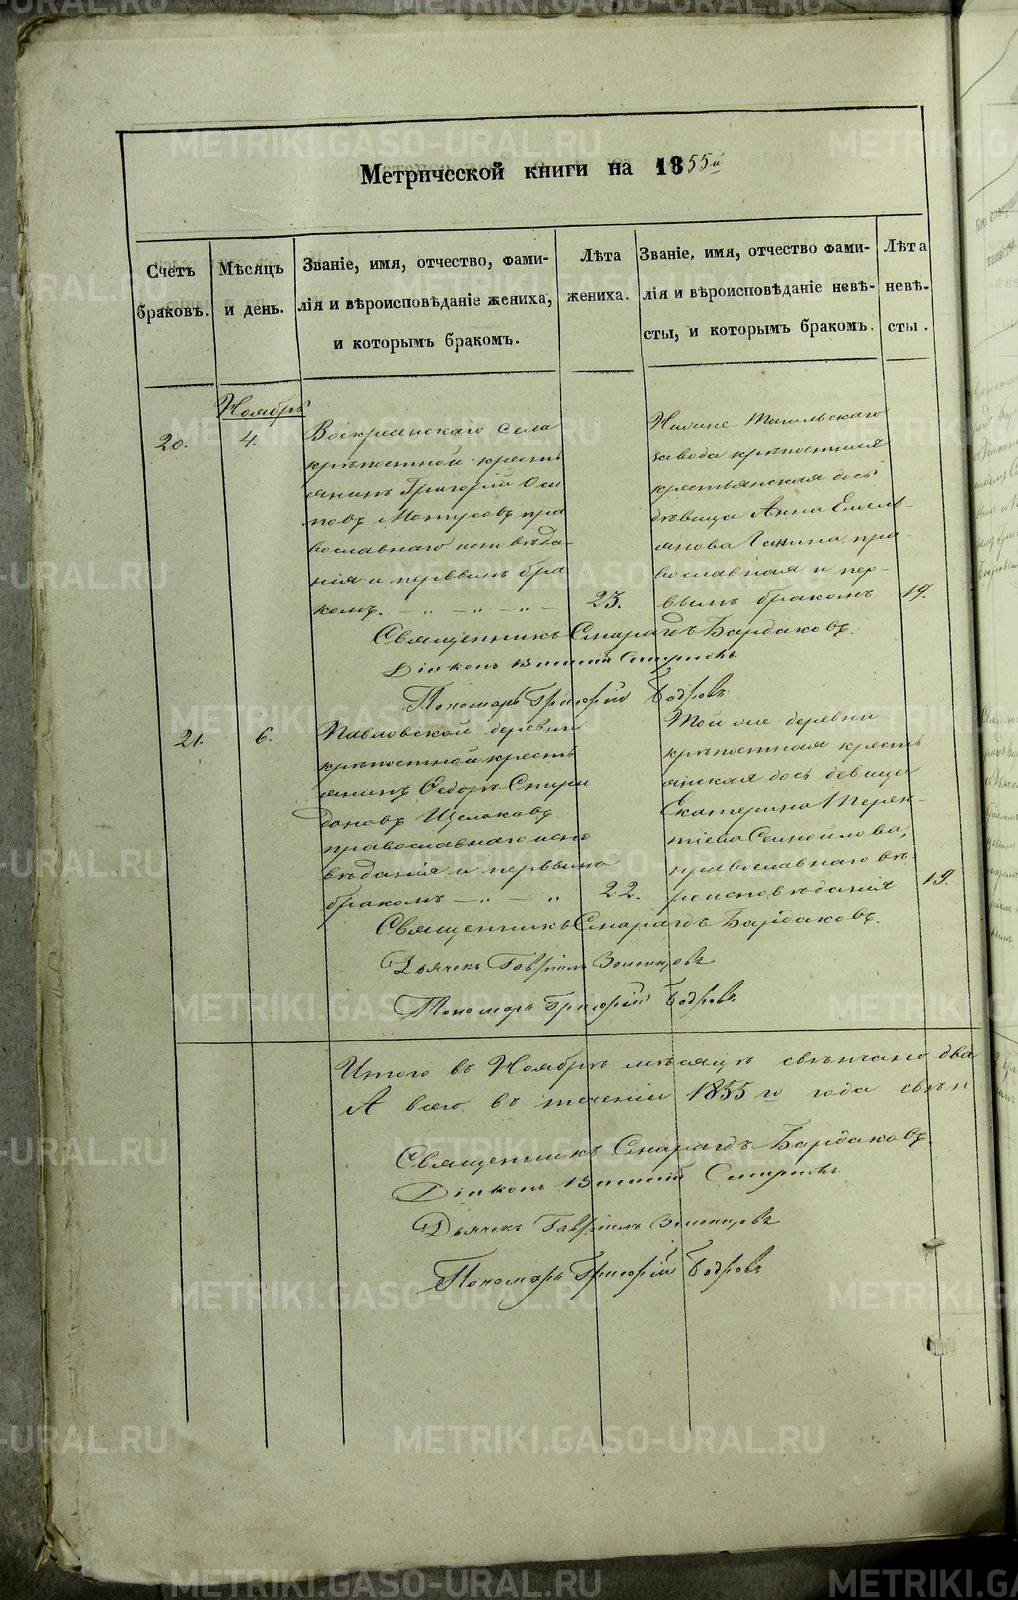 Метрической книги на 1855й
Счетъ браковъ.
Мѣсяцъ и день.
Званіе, имя, отчество, фами-
лія и вѣроисповѣданіе жениха,
и которымъ бракомъ.
Лѣта жениха.
Званіе, имя, отчество фами-
лія и вѣроисповѣданіе невѣ-
сты, и которымъ бракомъ.
Лѣта невѣ-
сты.
Ноябрь
20.
4.
Воскресенскаго села
крѣпостной кресть
янинъ Григорій Оси
повъ православ
вославнаго исповѣда-
нія и первымъ бра
комъ.
23.
Нижне-Тагильскаго
завода крѣпостная
крестьянская дочь
дѣвица Анна Емель-
янова пра-
вославная и пер-
вымъ бракомъ
19.
Священникъ Смарагдъ Бардаковъ.
Діаконъ Смирновъ
Пономарь Григорій Бодровъ
21.
6.
Павловской деревни
крѣпостной кресть
янинъ Ѳедоръ Спири
доновъ Щелоковъ
православнаго испо
вѣданія и первымъ
бракомъ
22.
Той же деревни
крѣпостная кресть
янская дочь девица
Екатерина Терен-
тіева Самойлова,
православнаго вѣ-
роисповѣданія
19.
Священникъ Смарагдъ Бардаковъ.
Дьячекъ Гавріилъ
Пономарь Григорій Бодровъ
Итого въ Ноябрѣ мѣсяцѣ свѣнчано два
А всего въ теченіи 1855го года свѣн
Священникъ Смарагдъ Бардаковъ.
Діаконъ Смирновъ
Дьячекъ Гавріилъ
Пономарь Григорій Бодровъ
METRIKI.GASO-URAL.RU